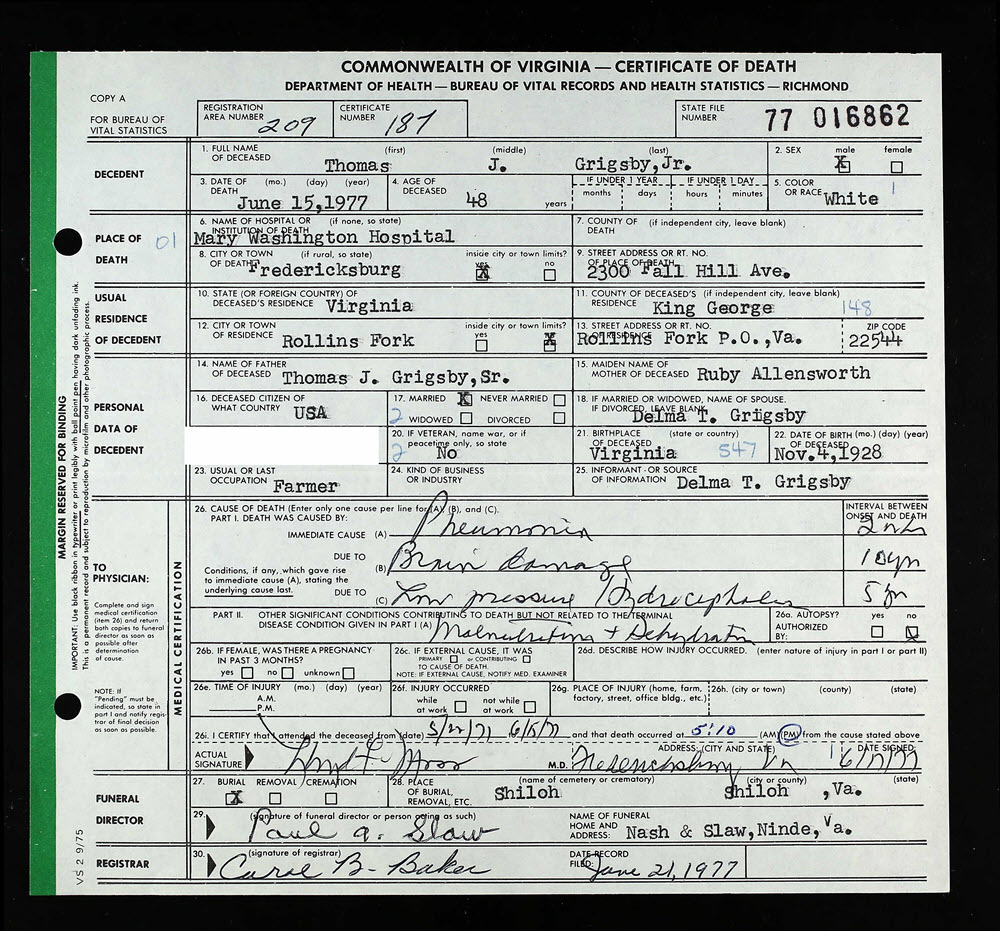 COMMONWEALTH OF VIRGINIA — CERTIFICATE OF DEATH
DEPARTMENT OF HEALTH — BUREAU OF VITAL RECORDS AND HEALTH STATISTICS — RICHMOND
COPY A
FOR BUREAU OF VITAL STATISTICS
REGISTRATION AREA NUMBER 209
CERTIFICATE NUMBER 187
STATE FILE NUMBER 77 016862
DECEDENT
1. FULL NAME OF DECEASED (first) (middle) (last)
Thomas J. Grigsby,Jr.
2. SEX male X female
3. DATE OF DEATH (mo.) (day) (year)
June 15,1977
4. AGE OF DECEASED 48 years
IF UNDER 1 YEAR months days
IF UNDER 1 DAY hours minutes
5. COLOR OR RACE White 1
PLACE OF DEATH 01
6. NAME OF HOSPITAL OR INSTITUTION OF DEATH (if none, so state)
Mary Washington Hospital
7. COUNTY OF DEATH (if independent city, leave blank)
8. CITY OR TOWN OF DEATH (if rural, so state) inside city or town limits? yes X no
Fredericksburg
9. STREET ADDRESS OR RT. NO. OF PLACE OF DEATH
2300 Fall Hill Ave.
USUAL RESIDENCE OF DECEDENT
10. STATE (OR FOREIGN COUNTRY) OF DECEASED'S RESIDENCE Virginia
11. COUNTY OF DECEASED'S RESIDENCE (if independent city, leave blank)
King George 148
12. CITY OR TOWN OF RESIDENCE inside city or town limits? yes no X
Rollins Fork
13. STREET ADDRESS OR RT. NO. OF RESIDENCE
Rollins Fork P.O.,Va.
ZIP CODE 22544
PERSONAL DATA OF DECEDENT
14. NAME OF FATHER OF DECEASED Thomas J. Grigsby,Sr.
15. MAIDEN NAME OF MOTHER OF DECEASED Ruby Allensworth
16. DECEASED CITIZEN OF WHAT COUNTRY USA
17. MARRIED X NEVER MARRIED
2 WIDOWED DIVORCED
18. IF MARRIED OR WIDOWED, NAME OF SPOUSE. IF DIVORCED, LEAVE BLANK
Delma T. Grigsby
20. IF VETERAN, name war, or if peacetime only, so state
2 No
21. BIRTHPLACE OF DECEASED (state or country)
Virginia 547
22. DATE OF BIRTH (mo.) (day) (year) OF DECEASED
Nov.4,1928
23. USUAL OR LAST OCCUPATION Farmer
24. KIND OF BUSINESS OR INDUSTRY
25. INFORMANT · OR SOURCE OF INFORMATION Delma T. Grigsby
TO PHYSICIAN:
Complete and sign medical certification (item 26) and return both copies to funeral director as soon as possible after determination of cause.
NOTE: If "Pending" must be indicated, so state in part I and notify registrar of final decision as soon as possible.
MEDICAL CERTIFICATION
26. CAUSE OF DEATH (Enter only one cause per line for (A), (B), and (C).
PART I. DEATH WAS CAUSED BY:
INTERVAL BETWEEN ONSET AND DEATH
IMMEDIATE CAUSE (A) Pneumonia
Conditions, if any, which gave rise to immediate cause (A), stating the underlying cause last.
DUE TO (B) Brain damage 10yr
DUE TO (C) Low pressure Hydrocephalus 5 yr
PART II. OTHER SIGNIFICANT CONDITIONS CONTRIBUTING TO DEATH BUT NOT RELATED TO THE TERMINAL DISEASE CONDITION GIVEN IN PART I (A)
Malnutrition + Dehydration
26a. AUTOPSY? AUTHORIZED BY: yes no
26b. IF FEMALE, WAS THERE A PREGNANCY IN PAST 3 MONTHS?
yes no unknown
26c. IF EXTERNAL CAUSE, IT WAS PRIMARY or CONTRIBUTING TO CAUSE OF DEATH.
NOTE: IF EXTERNAL CAUSE, NOTIFY MED. EXAMINER
26d. DESCRIBE HOW INJURY OCCURRED. (enter nature of injury in part I or part II)
26e. TIME OF INJURY (mo.) (day) (year)
A.M.
P.M.
26f. INJURY OCCURRED
while at work not while at work
26g. PLACE OF INJURY (home, farm, factory, street, office bldg., etc.)
26h. (city or town) (county) (state)
26i. I CERTIFY that I attended the deceased from (date) and that death occurred at 5:10 (AM) (PM) from the cause stated above
ACTUAL SIGNATURE M.D.
ADDRESS: (CITY AND STATE) Fredericksburg Va
DATE SIGNED:
FUNERAL DIRECTOR
27. BURIAL REMOVAL CREMATION
X
28. PLACE OF BURIAL, REMOVAL, ETC. (name of cemetery or crematory) (city or county) (state)
Shiloh Shiloh ,Va.
29. (signature of funeral director or person acting as such)
Paul A. Slaw
NAME OF FUNERAL HOME AND ADDRESS: Nash & Slaw,Ninde,Va.
REGISTRAR
30. (signature of registrar)
Carol B. Baker
DATE RECORD FILED: June 21, 1977
MARGIN RESERVED FOR BINDING
IMPORTANT: Use black ribbon in typewriter or print legibly with ball point pen having dark unfading ink.
This is a permanent record and subject to reproduction by microfilm and other photographic process.
VS 2 9/75